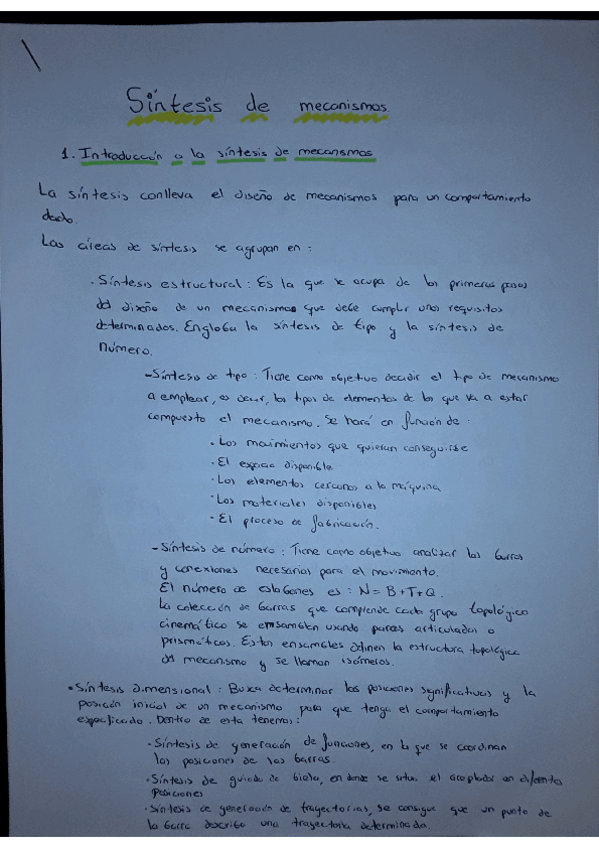 Síntesis de mecanismos.
1. Introducción a la síntesis de mecanismos
La síntesis conlleva el diseño de mecanismos para un comportamiento
dado.
Las áreas de síntesis se agrupan en :
· Síntesis estructural : Es la que se ocupa de los primeros pasos
del diseño de un mecanismos que debe cumplir unos requisitos
determinados. Engloba la síntesis de tipo y la síntesis de
número.
- Síntesis de tipo : Tiene como objetivo decidir el tipo de mecanismo
a emplear, es decir, los tipos de elementos de los que va a estar
compuesto el mecanismo. Se hará en función de :
· Los movimientos que quieran conseguirse
· El espacio disponible
· Los elementos cercanos a la máquina
· Los materiales disponibles
· El proceso de fabricación.
- Síntesis de número : Tiene como objetivo analizar las barras
y conexiones necesarias para el movimiento.
El número de eslabones es : N = B+T+Q.
La colección de barras que comprende cada grupo topológico
cinemático se ensamblan usando pares articulados o
prismáticos. Estos ensambles definen la estructura topológica
del mecanismo y se llaman isómeros.
· Síntesis dimensional : Busca determinar las posiciones significativas y la
posición inicial de un mecanismo para que tenga el comportamiento
especificado. Dentro de esta tenemos :
· Síntesis de generación de funciones, en la que se coordinan
las posiciones de las barras.
· Síntesis de guiado de biela, en donde se situa el acoplador en diferentes
posiciones
· Síntesis de generación de trayectorias, se consigue que un punto de
la barra describa una trayectoria determinada